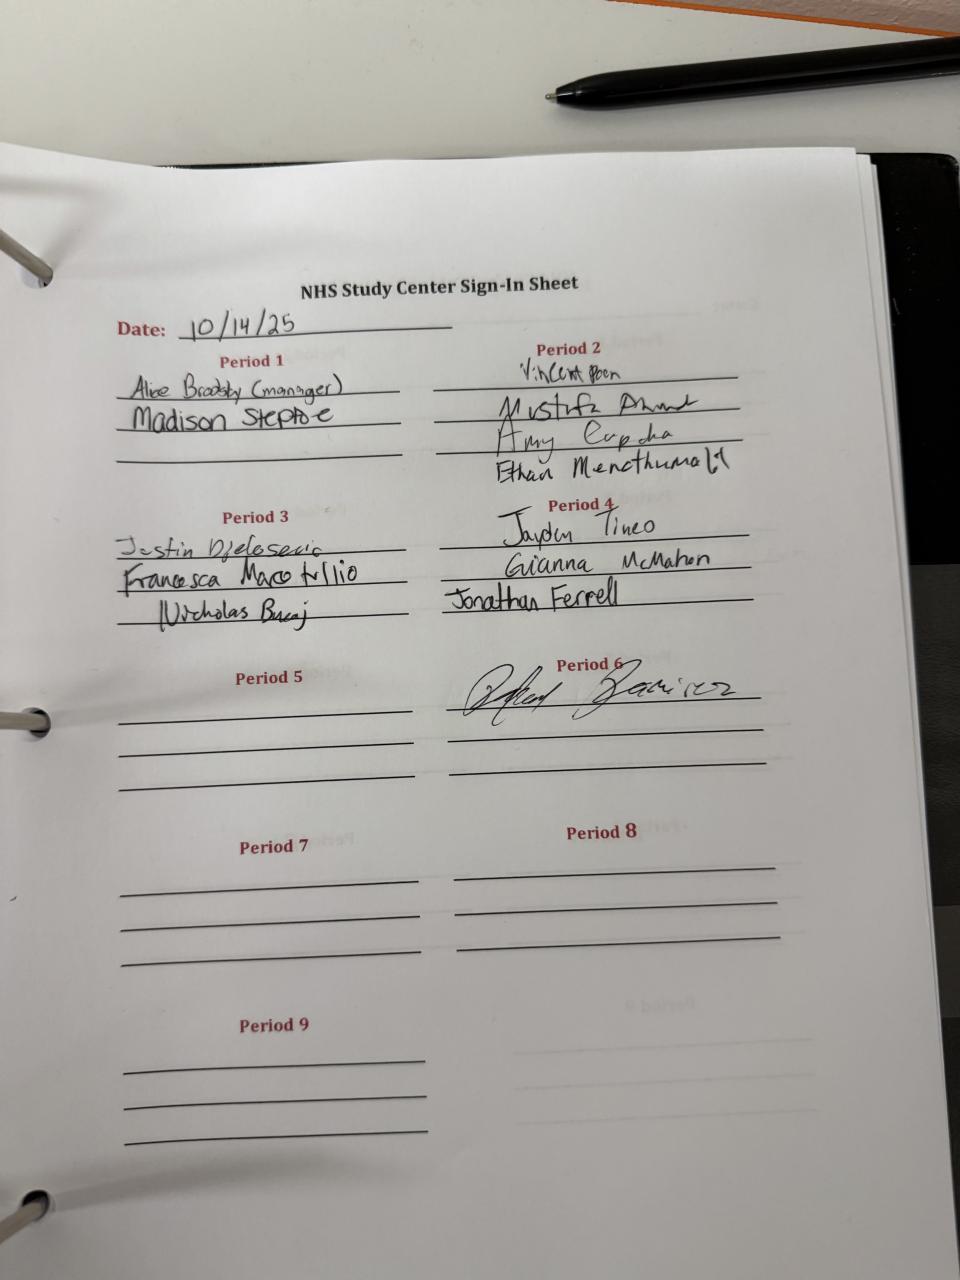 NHS Study Center Sign-In Sheet
Date: 10/14/25
Period 1
Alice Brodsky (manager)
Madison Steptoe
Period 2
Vincent Poon
Mustafa Ahmed
Amy
Ethan
Period 3
Justin
Francesca
Nicholas
Period 4
Jayden Tineo
Gianna McMahon
Jonathan Ferrell
Period 5
Period 6
Ramirez
Period 7
Period 8
Period 9